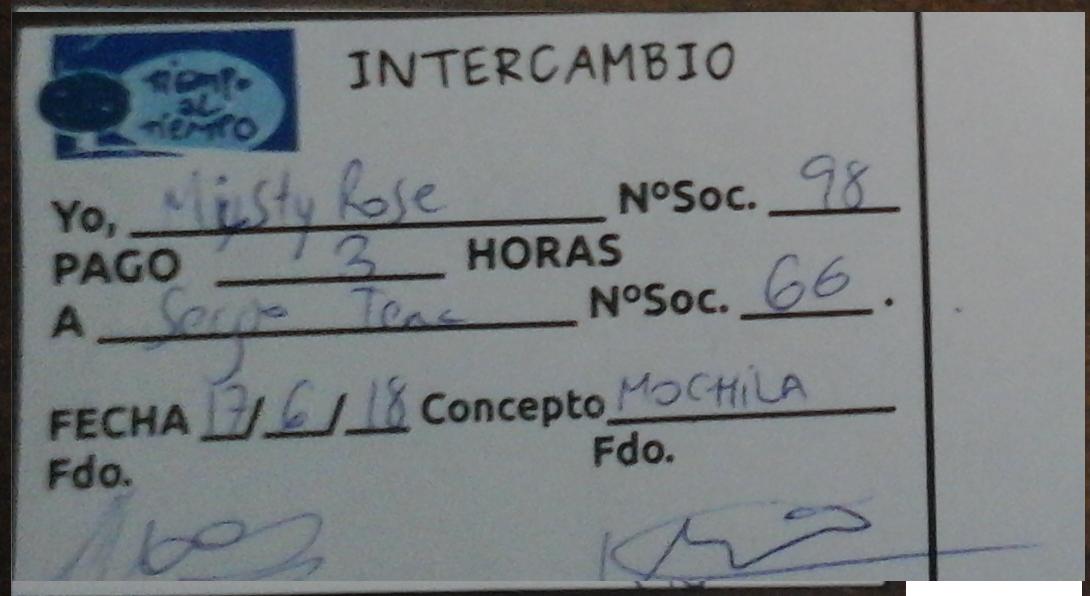 tiempo
al
tiempo
INTERCAMBIO
Yo, Misty Rose NºSoc. 98
PAGO 3 HORAS
A Sergio Tena NºSoc. 66.
FECHA 17/6/18 Concepto MOCHILA
Fdo. Fdo.